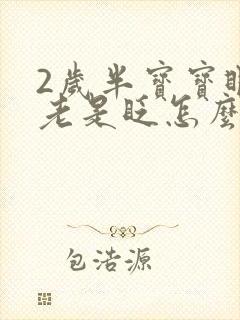 2歲半寶寶眼
老是眨怎麼
包浩源